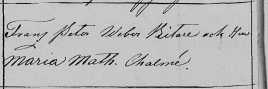 Frans Peter Weber Ritare och Hus
Maria Math. Chalmé.